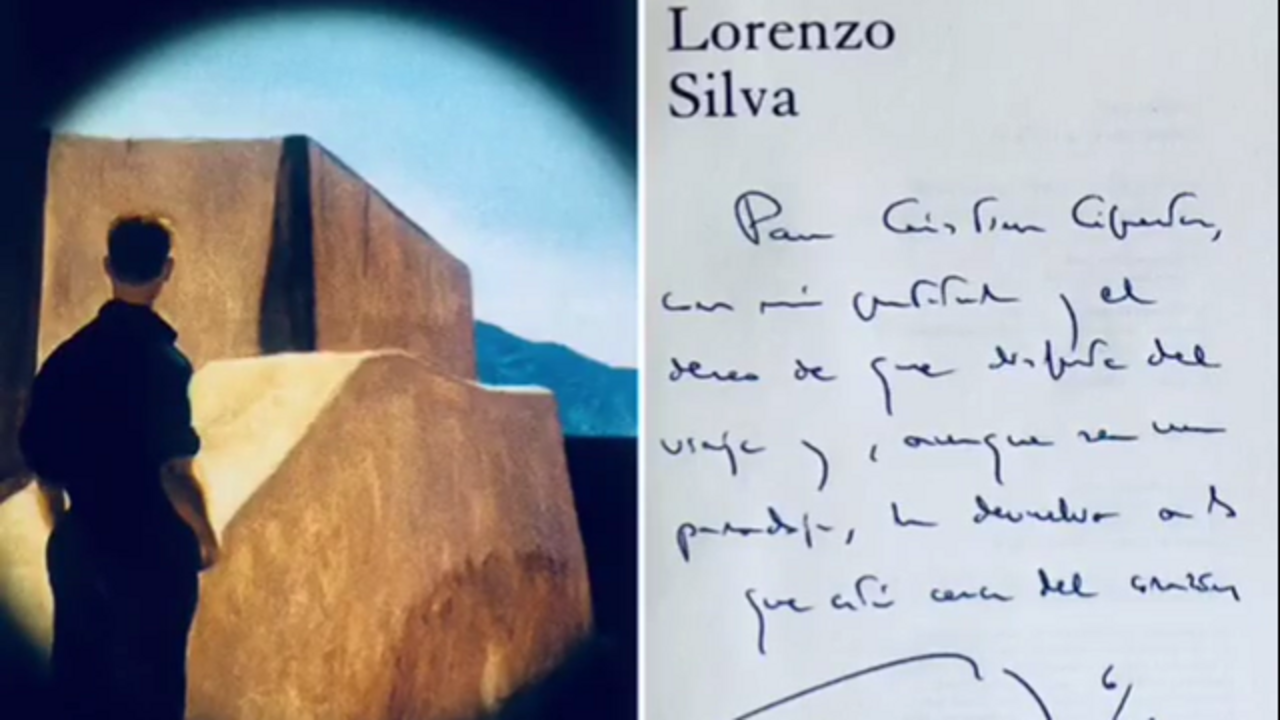 Lorenzo
Silva
Para Cristian
con mi gratitud y el
deseo de que disfrute del
viaje y, aunque sea una
paradoja, lo devuelva a lo
que está cerca del corazón
6/